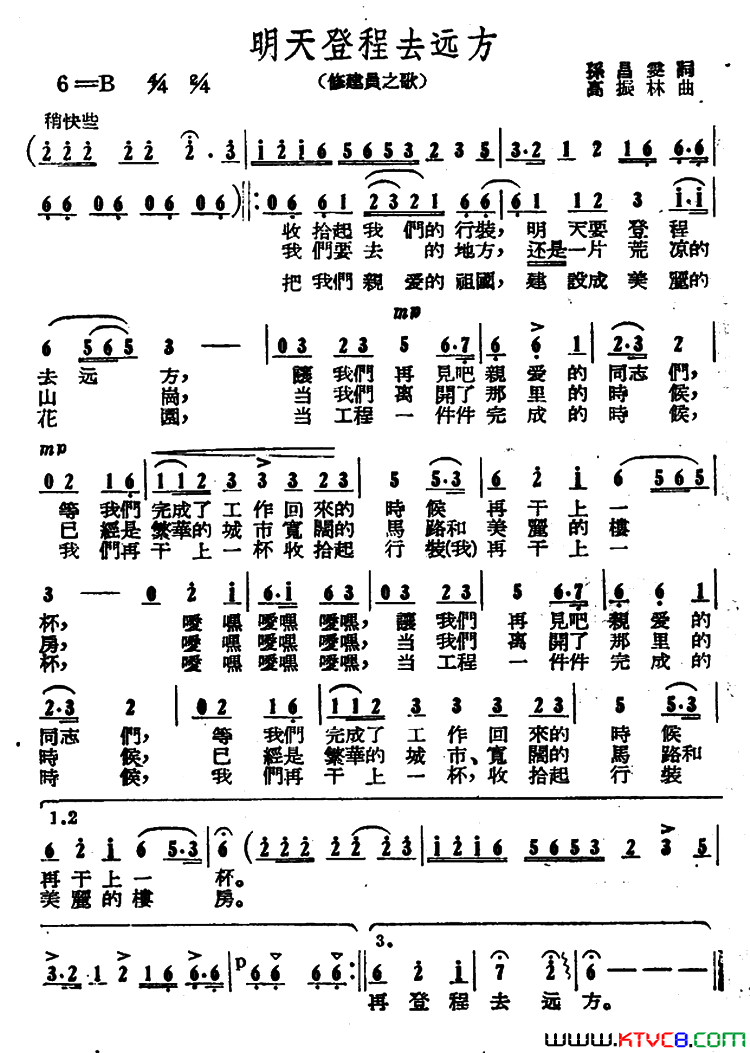 明天登程去远方
6＝B 4/4 2/4
（修建員之歌）
孫昌雯詞
高振林曲
稍快些
(2 2 2 2 2 2 2．3 | i 2 i 6 5 6 5 3 2 3 5 | 3·2 1 2 1 6 6·6 |
6 6 0 6 0 6 0 6) ‖: 0 6 6 1 2 3 2 1 6 6 | 6 1 1 2 3 i·i |
收拾起我們的行裝，明天要登程
我們要去的地方，还是一片荒凉的
把我們親愛的祖國，建設成美麗的
mp
6 5 6 5 3 — | 0 3 2 3 5 6·7 | 6 6 1 2·3 2 |
去远方，讓我們再見吧親愛的同志們，
山崗，当我們离開了那里的時候，
花園，当工程一件件完成的時候，
mp
0 2 1 6 | 1 1 2 3 3 2 3 | 5 5·3 | 6 2 i 6 5 6 5 |
等我們完成了工作回來的時候再干上一
已經是繁華的城市寬闊的馬路和美麗的樓
我們再干上一杯收拾起行裝(我)再干上一
3 — — 0 2 i | 6·i 6 3 | 0 3 2 3 | 5 6·7 | 6 6 1 |
杯，噯嘿噯嘿噯嘿，讓我們再見吧親愛的
房，噯嘿噯嘿噯嘿，当我們离開了那里的
杯，噯嘿噯嘿噯嘿，当工程一件件完成的
2·3 2 | 0 2 1 6 | 1 1 2 3 3 2 3 | 5 5·3 |
同志們，等我們完成了工作回來的時候
時候，已經是繁華的城市、寬闊的馬路和
時候，我們再干上一杯，收拾起行裝
1.2
6 2 i 6 5·3 | 6 (2 2 2 2 2 2 2 3 | i 2 i 6 5 6 5 3 2 3 5 |
再干上一杯。
美麗的樓房。
3.
3·2 1 2 1 6 6·6 | p 6 6 6 6 :‖ 6 2 i 7 2 | 6 — — — ‖
再登程去远方。
www.KTVC8.com